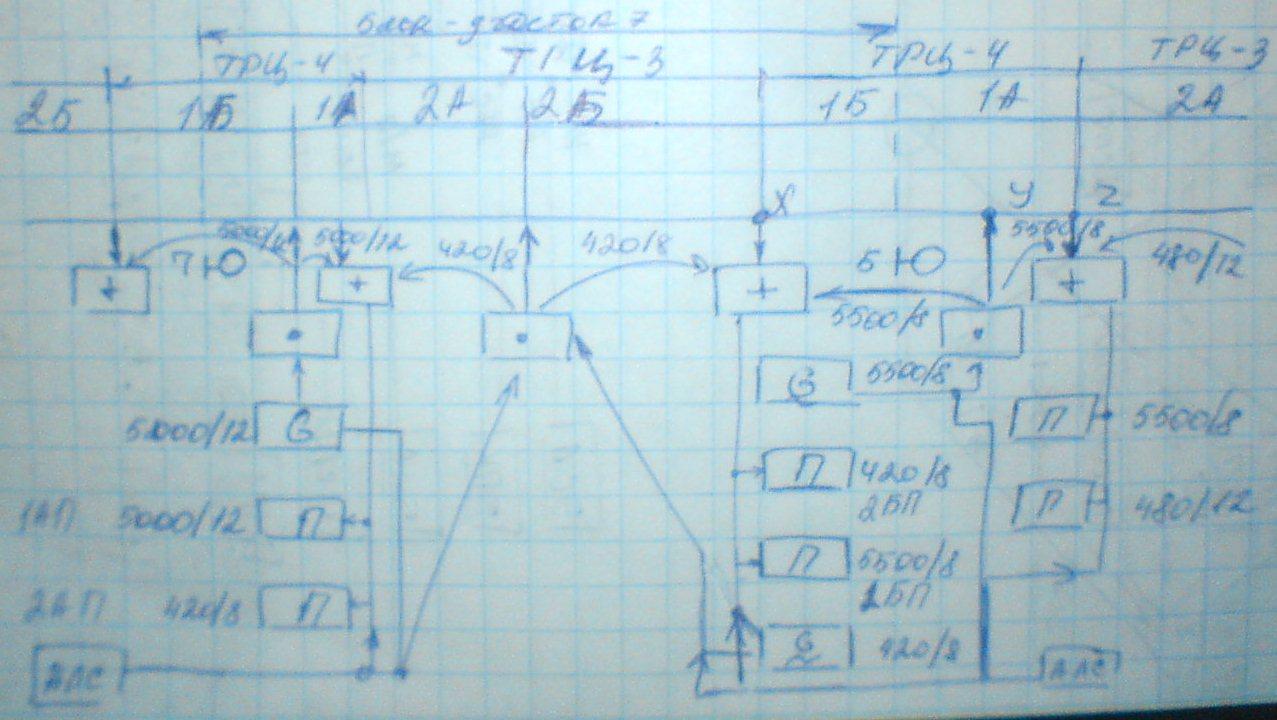 блок-участок 7
ТРЦ-4 ТРЦ-3 ТРЦ-4 ТРЦ-3
2Б 1Б 1А 2А 2Б 1Б 1А 2А
X У Z
5000/12 420/8 420/8 5500/8 480/12
7Ю 5Ю
+ + + +
5500/8
G 5500/8
5000/12 G П 5500/8
П 420/8
2БП
1АП 5000/12 П П 480/12
П 5500/8
1БП
2АП 420/8 П
G 420/8
АЛС АЛС